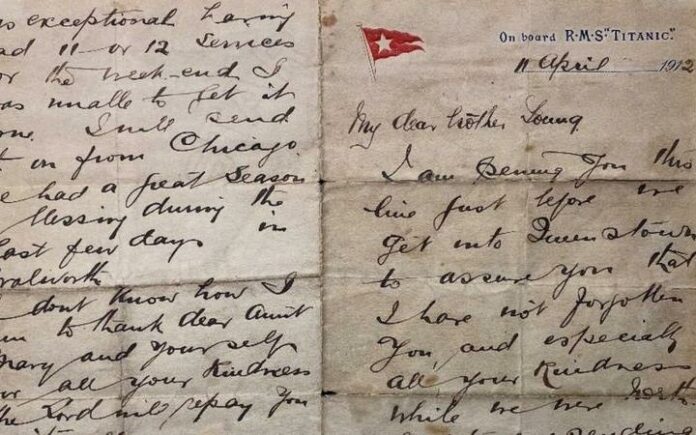 s exceptional having
ad 11 or 12 services
or the week-end I
as unable to get it
one. I will send
t on from Chicago
e had a great season
blessing during the
last few days in
alworth
dont know how I
m to thank dear Aunt
Mary and yourself
or all your kindness
the Lord will repay you
On board R.M.S. "TITANIC."
11 April 1912
My dear brother Young
I am penning you this
line just before we
get into Queenstown
to assure you that
I have not forgotten
you, and especially
all your kindness
while we were North.